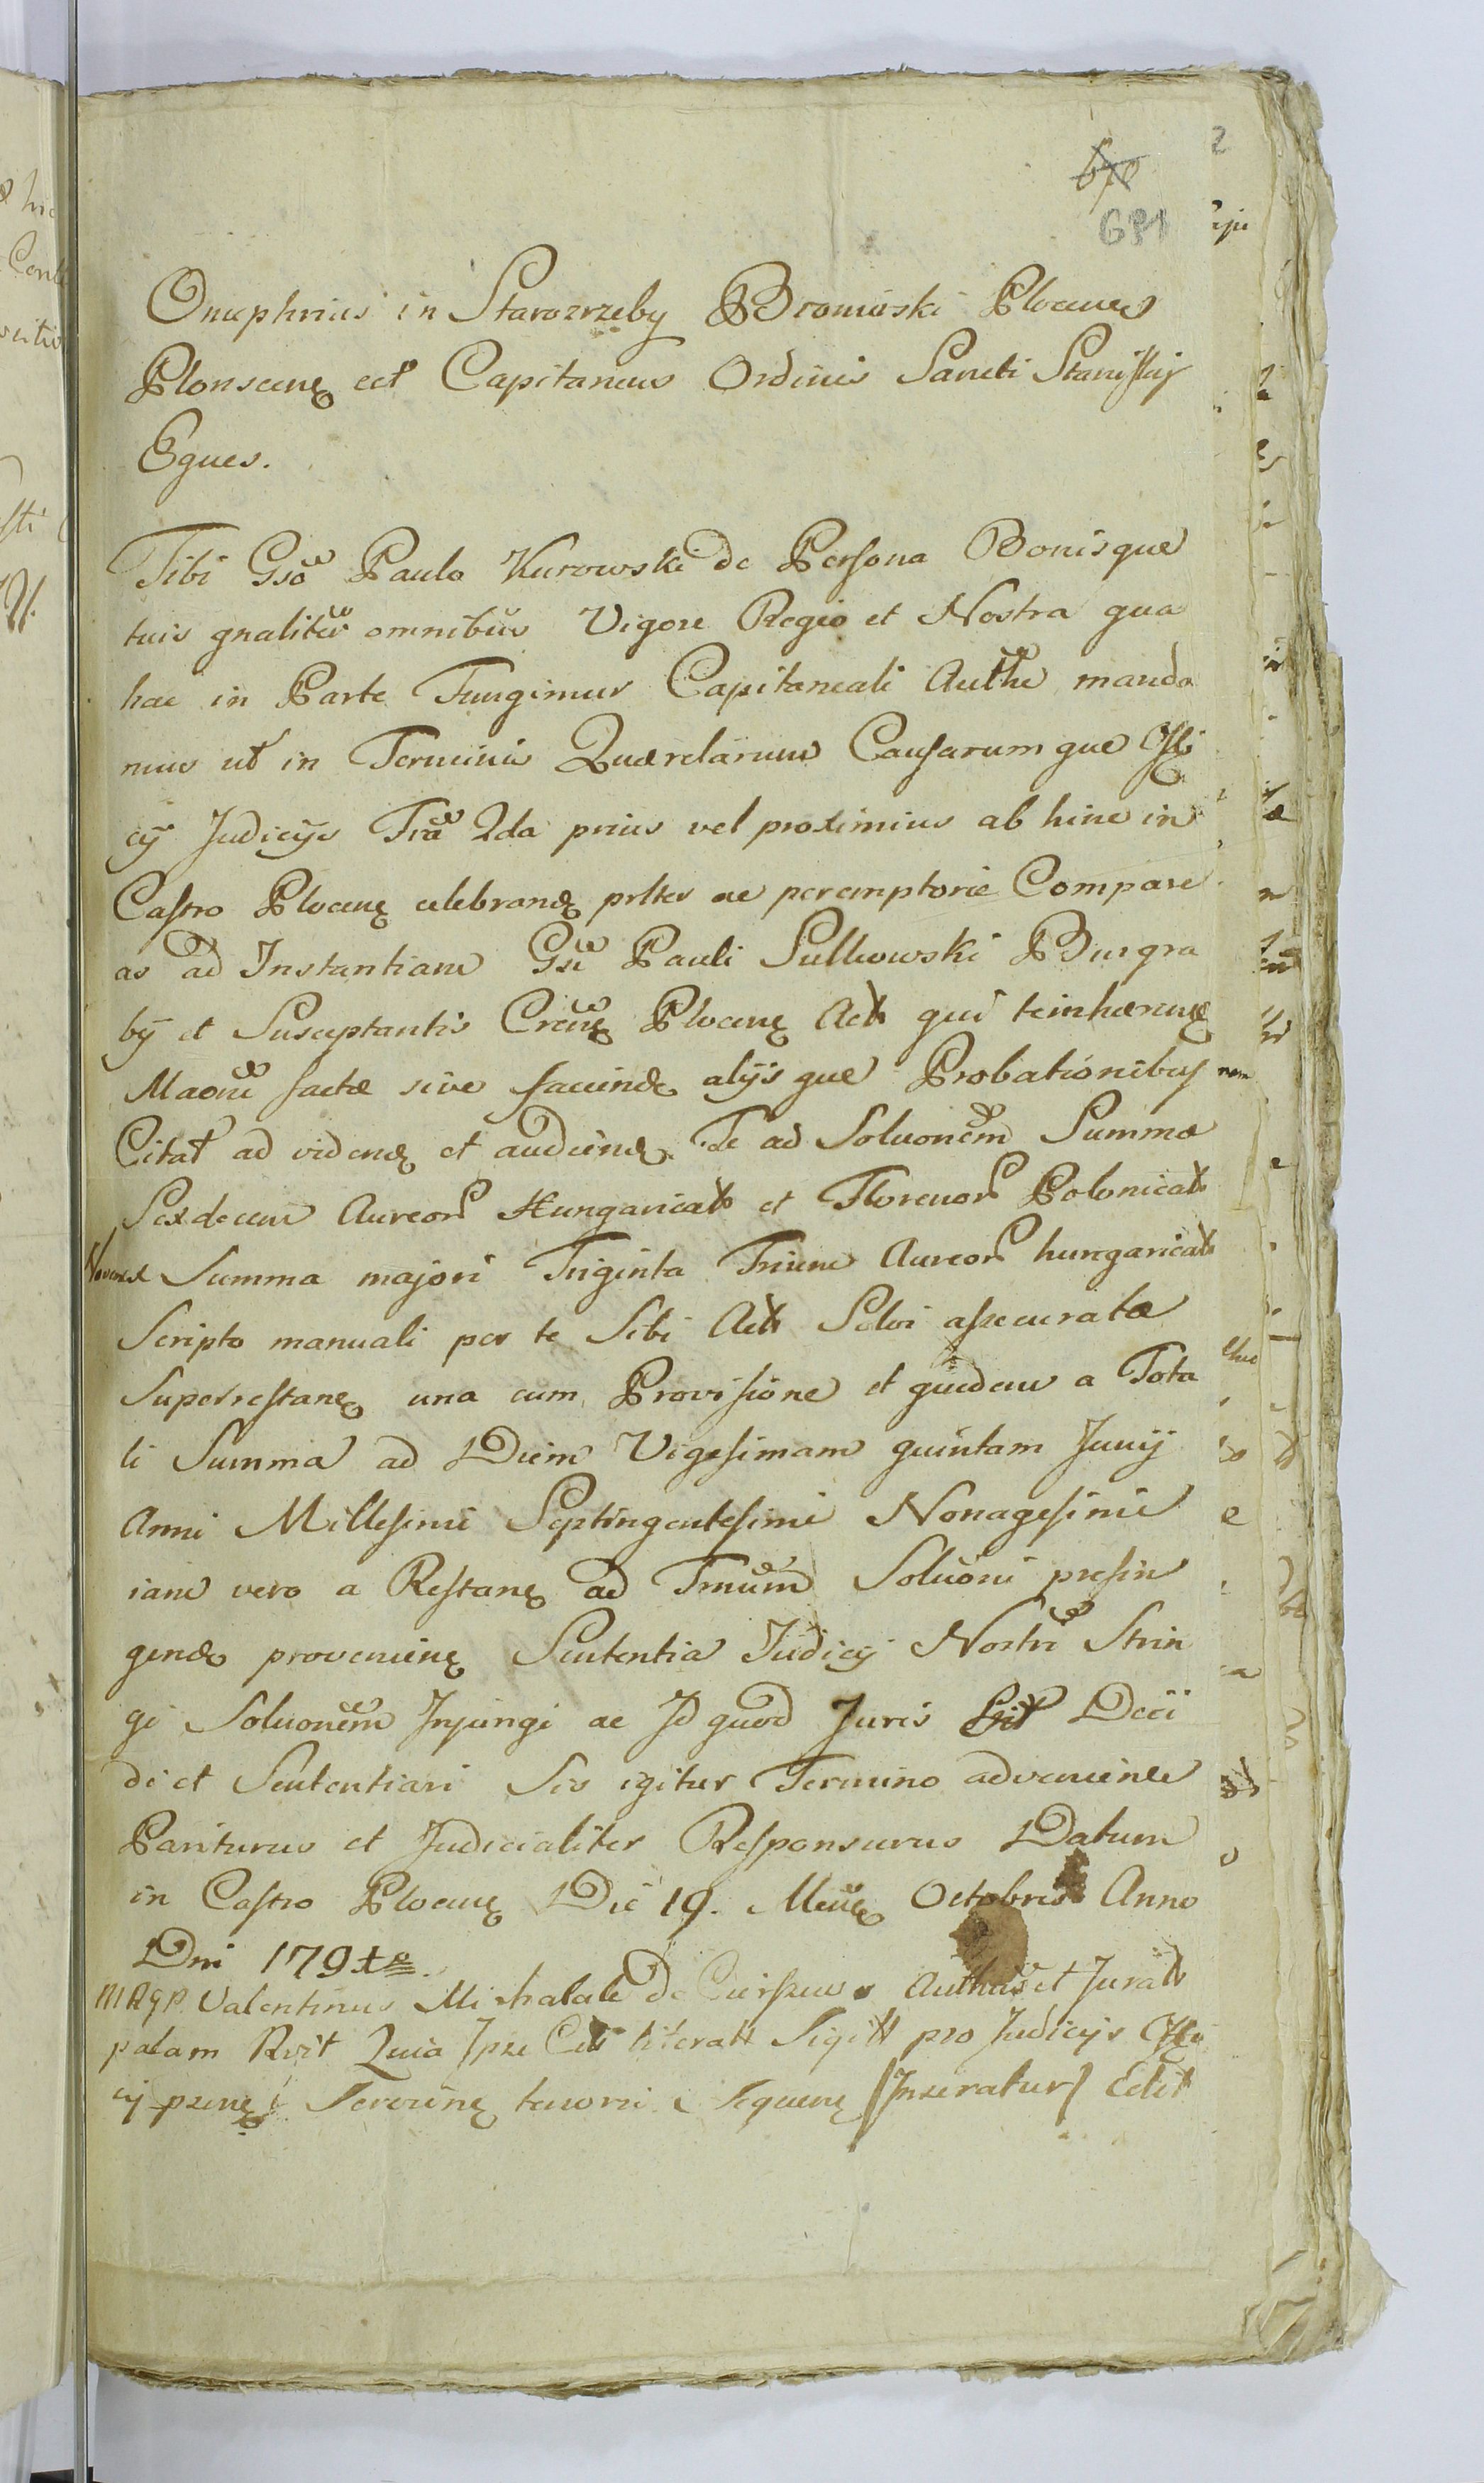 670
681
Onuphrius in Starozrzeby Bromirski Plocen
Plonscen ect Capitaneus Ordinis Sancti Stanislaij
Eques.
Tibi Gso Paulo Kurowski de Persona Bonisque
tuis gnaliter omnibus Vigore Regio et Nostra qua
hac in Parte Fungimur Capitaneali Autthe manda
mus ut in Terminis Quærelarum Causarumque Offi
cij Judicijs Fra 2da prius vel proximius ab hinc in
Castro Plocen celebrand prlter ac peremptorie Compare
as ad Instantiam Gsi Pauli Sulkowski Burgra
bij et Susceptantis Cren Plocen Act qui te inhæren
Maoni factæ sive faciend alijsque Probationibus
Citat ad vidend et audiend Te ad Soluonem Summæ
Sexdecem Aureor Hungarical et Florenor Polonical
Novem Summa majori Triginta Trium Aureor hungarical
Scripto manuali per te Sibi Act Solvi assecuratæ
Superrestan una cum Provisione et quidem a Tota
li Summa ad Diem Vigesimam quintam Junij
Anni Millesimi Septingentesimi Nonagesimi
iam vero a Restan ad Tmum Soluoni præfin
gend provenien Sententia Judicij Nostri Strin
gi Soluonem Injungi ac Id quod Juris Sit Deci
di et Sententiari Sis igitur Termino adveniente
Pariturus et Judicialiter Responsurus Datum
in Castro Plocen Die 19. Mens Octobris Anno
Dni 179
Valentinus Michalak de Authus et Jurat
palam Rvit Quia Ipse literall Sigill pro Judicijs Offi
cij Servien tenoris Sequen /Inseratur/ Edit